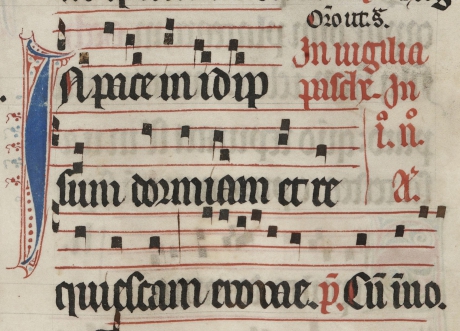 Orõ ut s̃.
In vigilia
In pace in idip
pasche. In
i. n̊.
sum dormiam et re
A.
quiescam evovae. p̃. Cũ ĩvo.